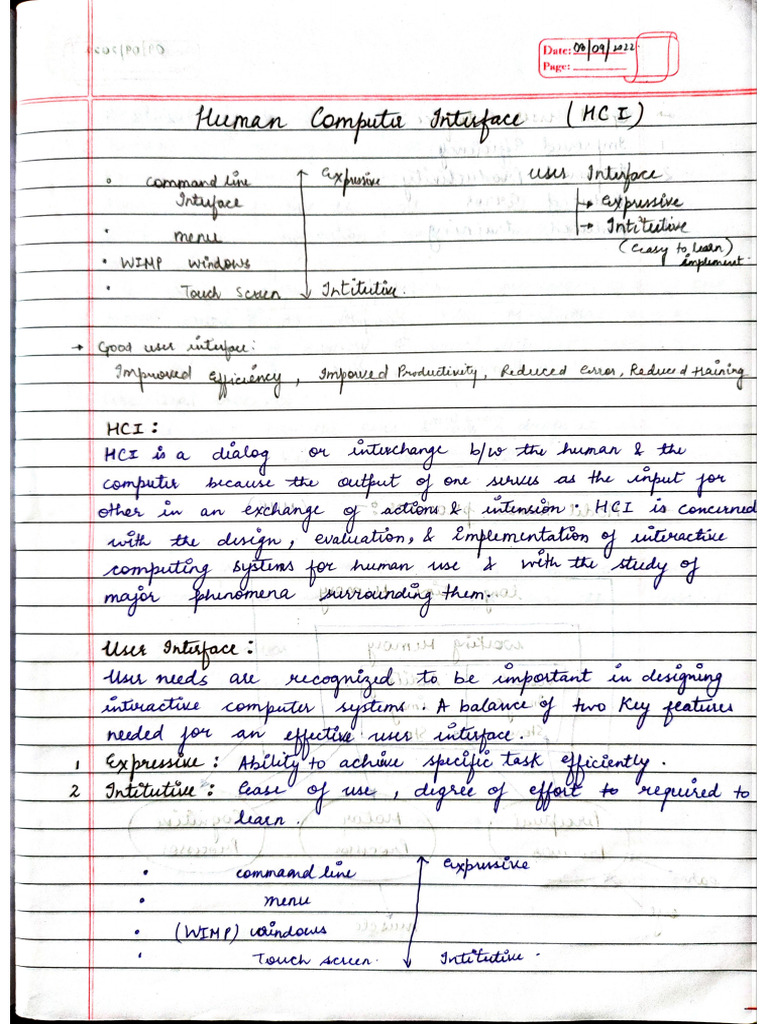 Date: 08/09/2022
Page:
Human Computer Interface (HCI)
• Command line Interface
• menu
• WIMP windows
• Touch Screen
Expressive
Intitutive.
User Interface
→ Expressive
→ Intitutive
(Easy to learn)
implement.
→ Good user interface:
Improved Efficiency, Improved Productivity, Reduced Error, Reduced training
HCI:
HCI is a dialog or interchange b/w the human & the
computer because the output of one serves as the input for
other in an exchange of actions & intension. HCI is concerned
with the design, evaluation, & implementation of interactive
computing systems for human use & with the study of
major phenomena surrounding them.
User Interface:
User needs are recognized to be important in designing
interactive computer systems. A balance of two Key features
needed for an effective user interface.
1 Expressive: Ability to achieve specific task efficiently.
2 Intitutive: Ease of use, degree of effort to required to
learn.
• command line
• menu
• (WIMP) windows
• Touch screen.
Expressive
Intitutive.